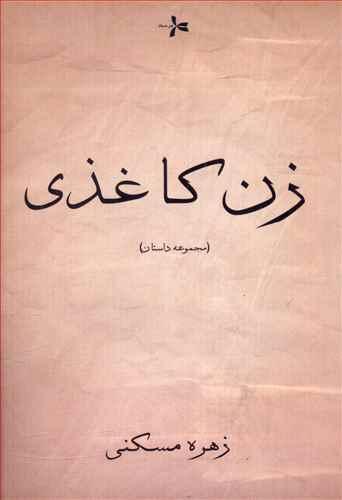 زن کاغذی
(مجموعه داستان)
زهره مسکنی